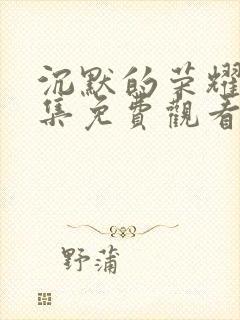 沉默的荣耀
集免費觀看
野蒲